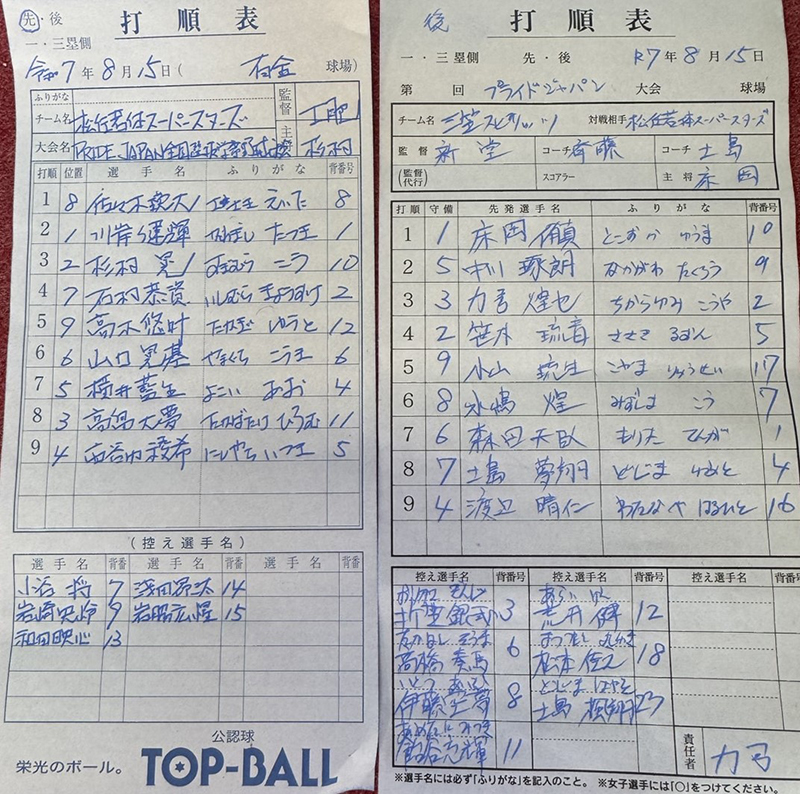 先・後 打順表
一・三塁側
令和7年8月15日( 球場)
ふりがな
チーム名 松任若体スーパースターズ
監督
大会名 PRIDE JAPAN
主将 杉村
打順 位置 選手名 ふりがな 背番号
1 8 佐々木 えいた 8
2 1 川岸 輝 かわぎし たつき 1
3 2 杉村 晃 すぎむら こう 10
4 7 石村恭資 いしむら きょうすけ 2
5 9 高木悠叶 たかぎ ゆうと 12
6 6 山口晃基 やまぐち こうき 6
7 5 横井藍生 よこい あお 4
8 3 高畠大夢 たかばたけ ひろむ 11
9 4 にしやち いつき 5
(控え選手名)
選手名 背番 選手名 背番 選手名 背番
小谷 将 7 浅田 14
岩崎 9 岩脇 煌 15
和田 心 13
公認球
栄光のボール。 TOP-BALL
後 打順表
一・三塁側 先・後 R7年8月15日
第 回 プライドジャパン 大会 球場
チーム名 三笠スピリッツ 対戦相手 松任若体スーパースターズ
監督 新堂 コーチ 斉藤 コーチ 土島
(監督代行) スコアラー 主将 床岡
打順 守備 先発選手名 ふりがな 背番号
1 1 床岡 とこおか ゆうま 10
2 5 中川 琢朗 なかがわ たくろう 9
3 3 力弓 煌也 ちからゆみ こうや 2
4 2 笹木 琉音 ささき るおん 5
5 9 小山 琉生 こやま りゅうせい 17
6 8 水嶋 煌 みずしま こう 7
7 6 森田天臥 もりた てんが 1
8 7 土島 夢翔 どじま ゆめと 4
9 4 渡辺 晴仁 わたなべ はるひと 16
控え選手名 背番号 控え選手名 背番号 控え選手名 背番号
3 荒井 健 12
高橋 奏馬 6 松本 18
伊藤 夢 8 どじま はやと
土島 颯翔 23
志輝 11
責任者 力弓
※選手名には必ず「ふりがな」を記入のこと。 ※女子選手には「○」をつけてください。